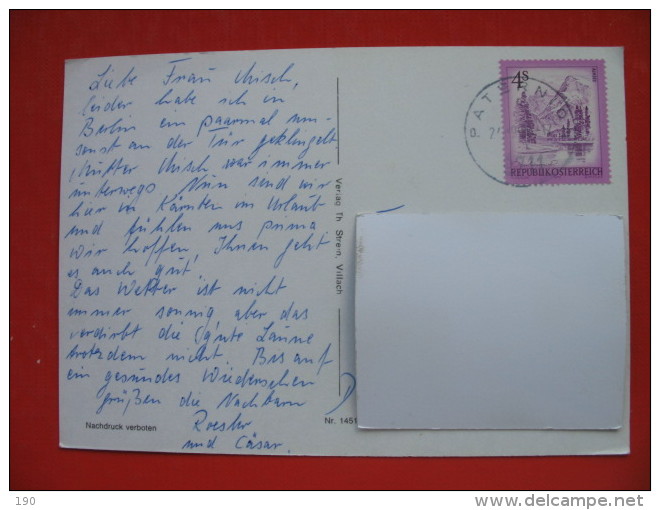 Liebe Frau Misch,
leider habe ich in
Berlin ein paarmal um-
sonst an der Tür geklingelt
Mutter Misch war immer
unterwegs Nun sind wir
hier in Kärnten im Urlaub
und fühlen uns prima
Wir hoffen, Ihnen geht
es auch gut.
Das Wetter ist nicht
immer sonnig aber das
verdirbt die gute Laune
trotzdem nicht. Bis auf
ein gesundes Wiedersehen
grüßen die Nachbarn
und Cäsar.
Nachdruck verboten
Verlag Th. Strein, Villach
Nr. 1451
4s
REPUBLIK ÖSTERREICH
190
delcampe.net